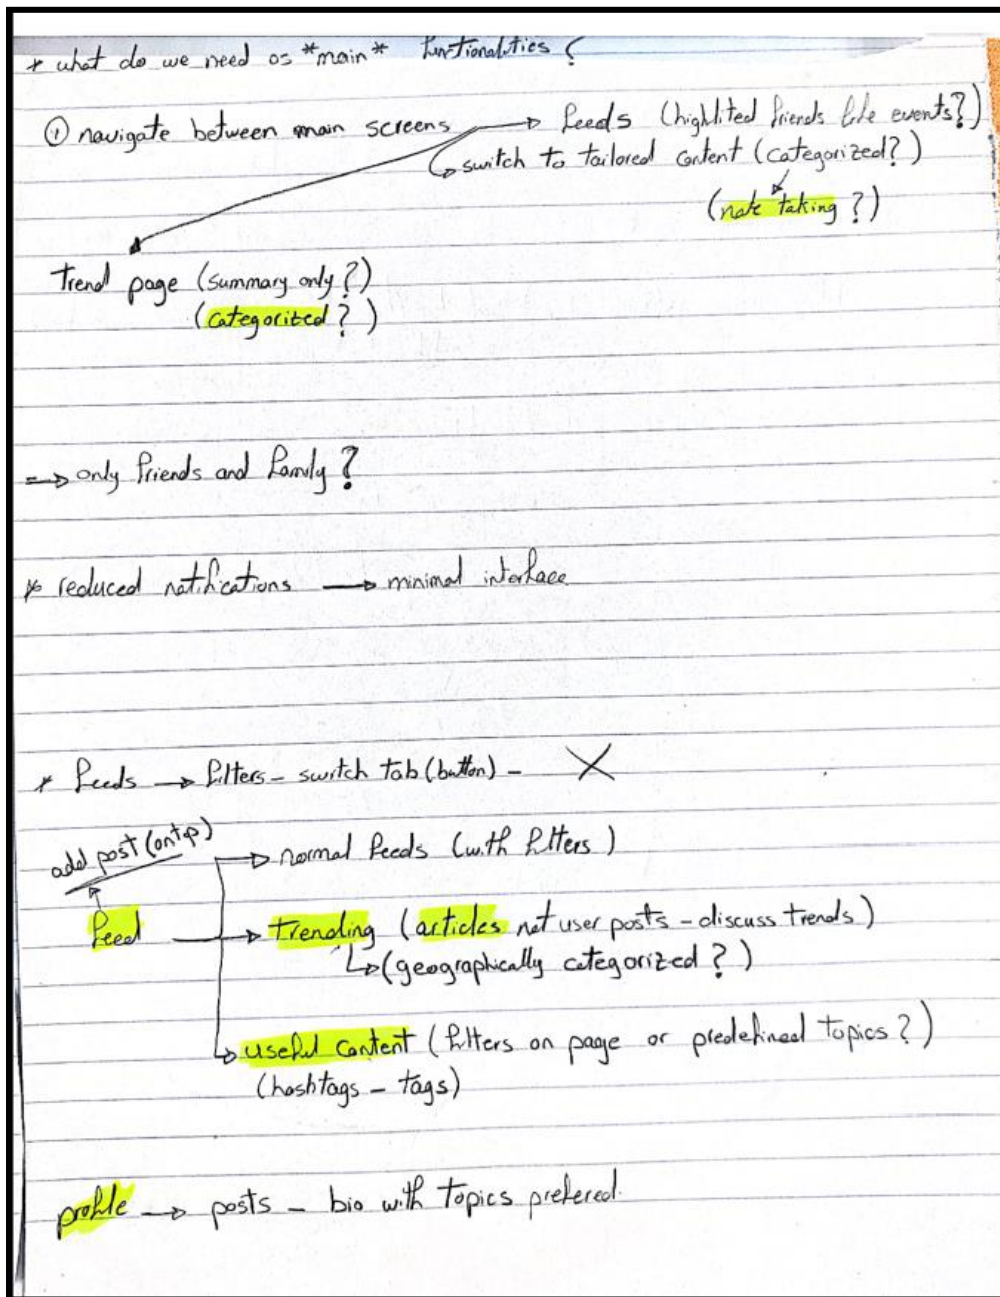 * what do we need as *main* functionalities ?
① navigate between main screens → feeds (highlited friends life events?)
↳ switch to tailored content (categorized?)
(note taking ?)
Trend page (summary only ?)
(categorized ?)
⇒ only friends and family ?
* reduced notifications → minimal interface
* feeds → filters - switch tab (button) - X
add post (on top)
→ normal feeds (with filters)
feed → trending (articles not user posts - discuss trends)
↳ (geographically categorized ?)
↳ useful content (filters on page or predefined topics ?)
(hashtags - tags)
profile → posts - bio with topics prefered.